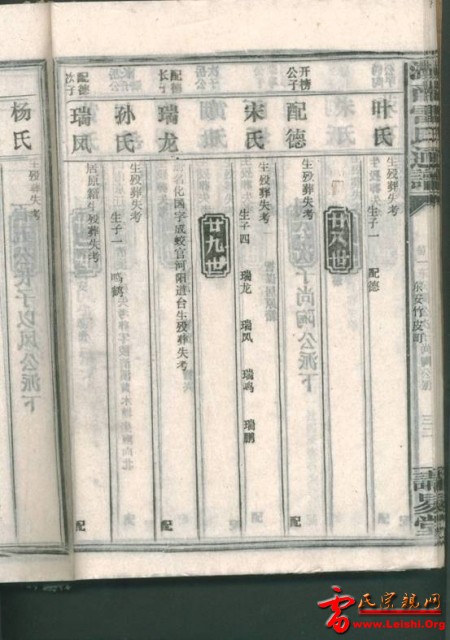 叶氏
生殁葬失考
生子一 配德
廿八世
开榜公子
配德
生殁葬失考
配
宋氏
生殁葬失考
生子四 瑞龙 瑞凤 瑞鸣 瑞鹏
廿九世
配德长子
瑞龙
化国字成蛟官河阳道台生殁葬失考
配
孙氏
生殁葬失考
生子一 鸣鹤
配德次子
瑞凤
居原籍生殁葬失考
配
杨氏
生殁葬失考
雷氏宗亲网
www.Leishi.Org